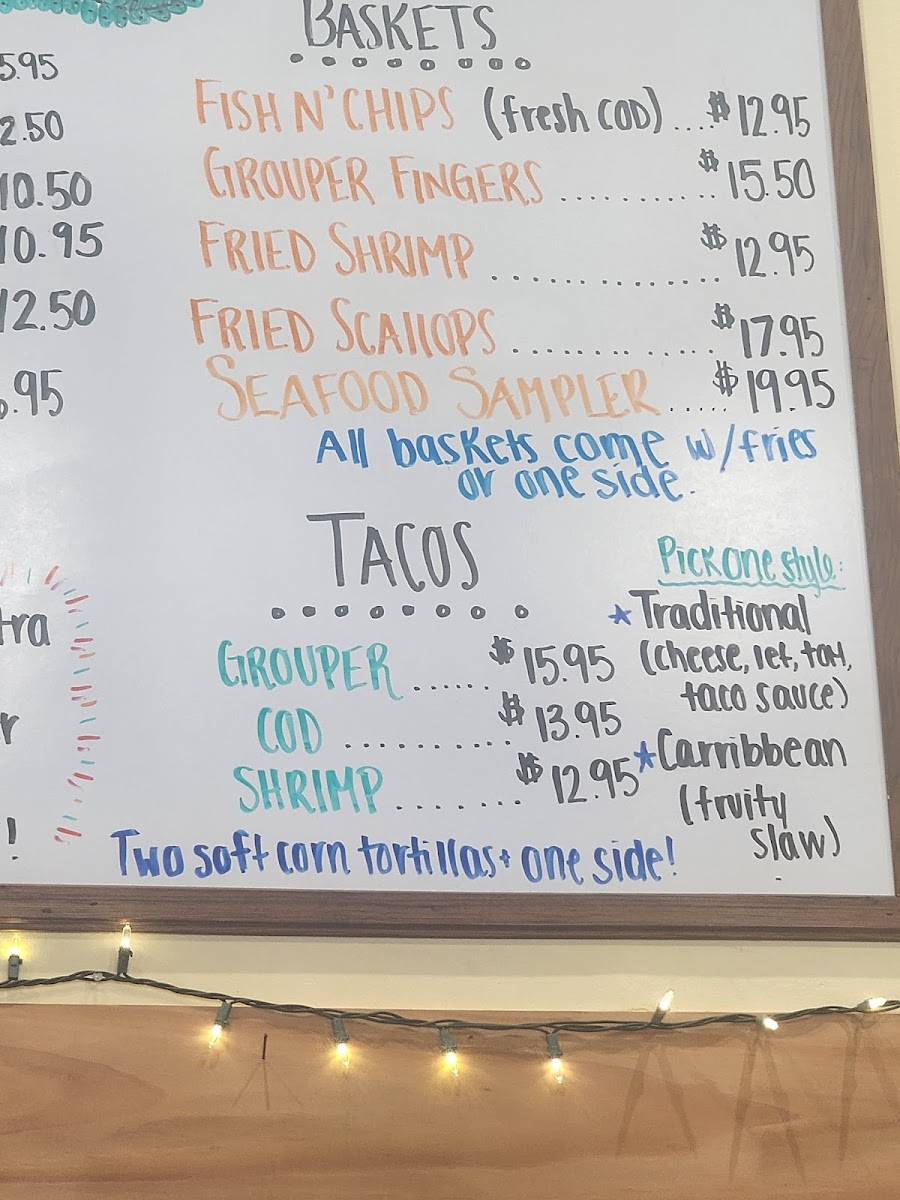 5.95
2.50
10.50
10.95
12.50
.95
tra
r
!
BASKETS
FISH N' CHIPS (fresh COD) .... $12.95
GROUPER FINGERS ............ $15.50
FRIED SHRIMP ............... $12.95
FRIED SCALLOPS ............. $17.95
SEAFOOD SAMPLER ..... $19.95
All baskets come w/fries
or one side.
TACOS
GROUPER ...... $15.95
COD ............ $13.95
SHRIMP ........ $12.95
Two soft corn tortillas + one side!
Pick one style:
* Traditional
(cheese, let, tom,
taco sauce)
* Carribbean
(fruity
slaw)